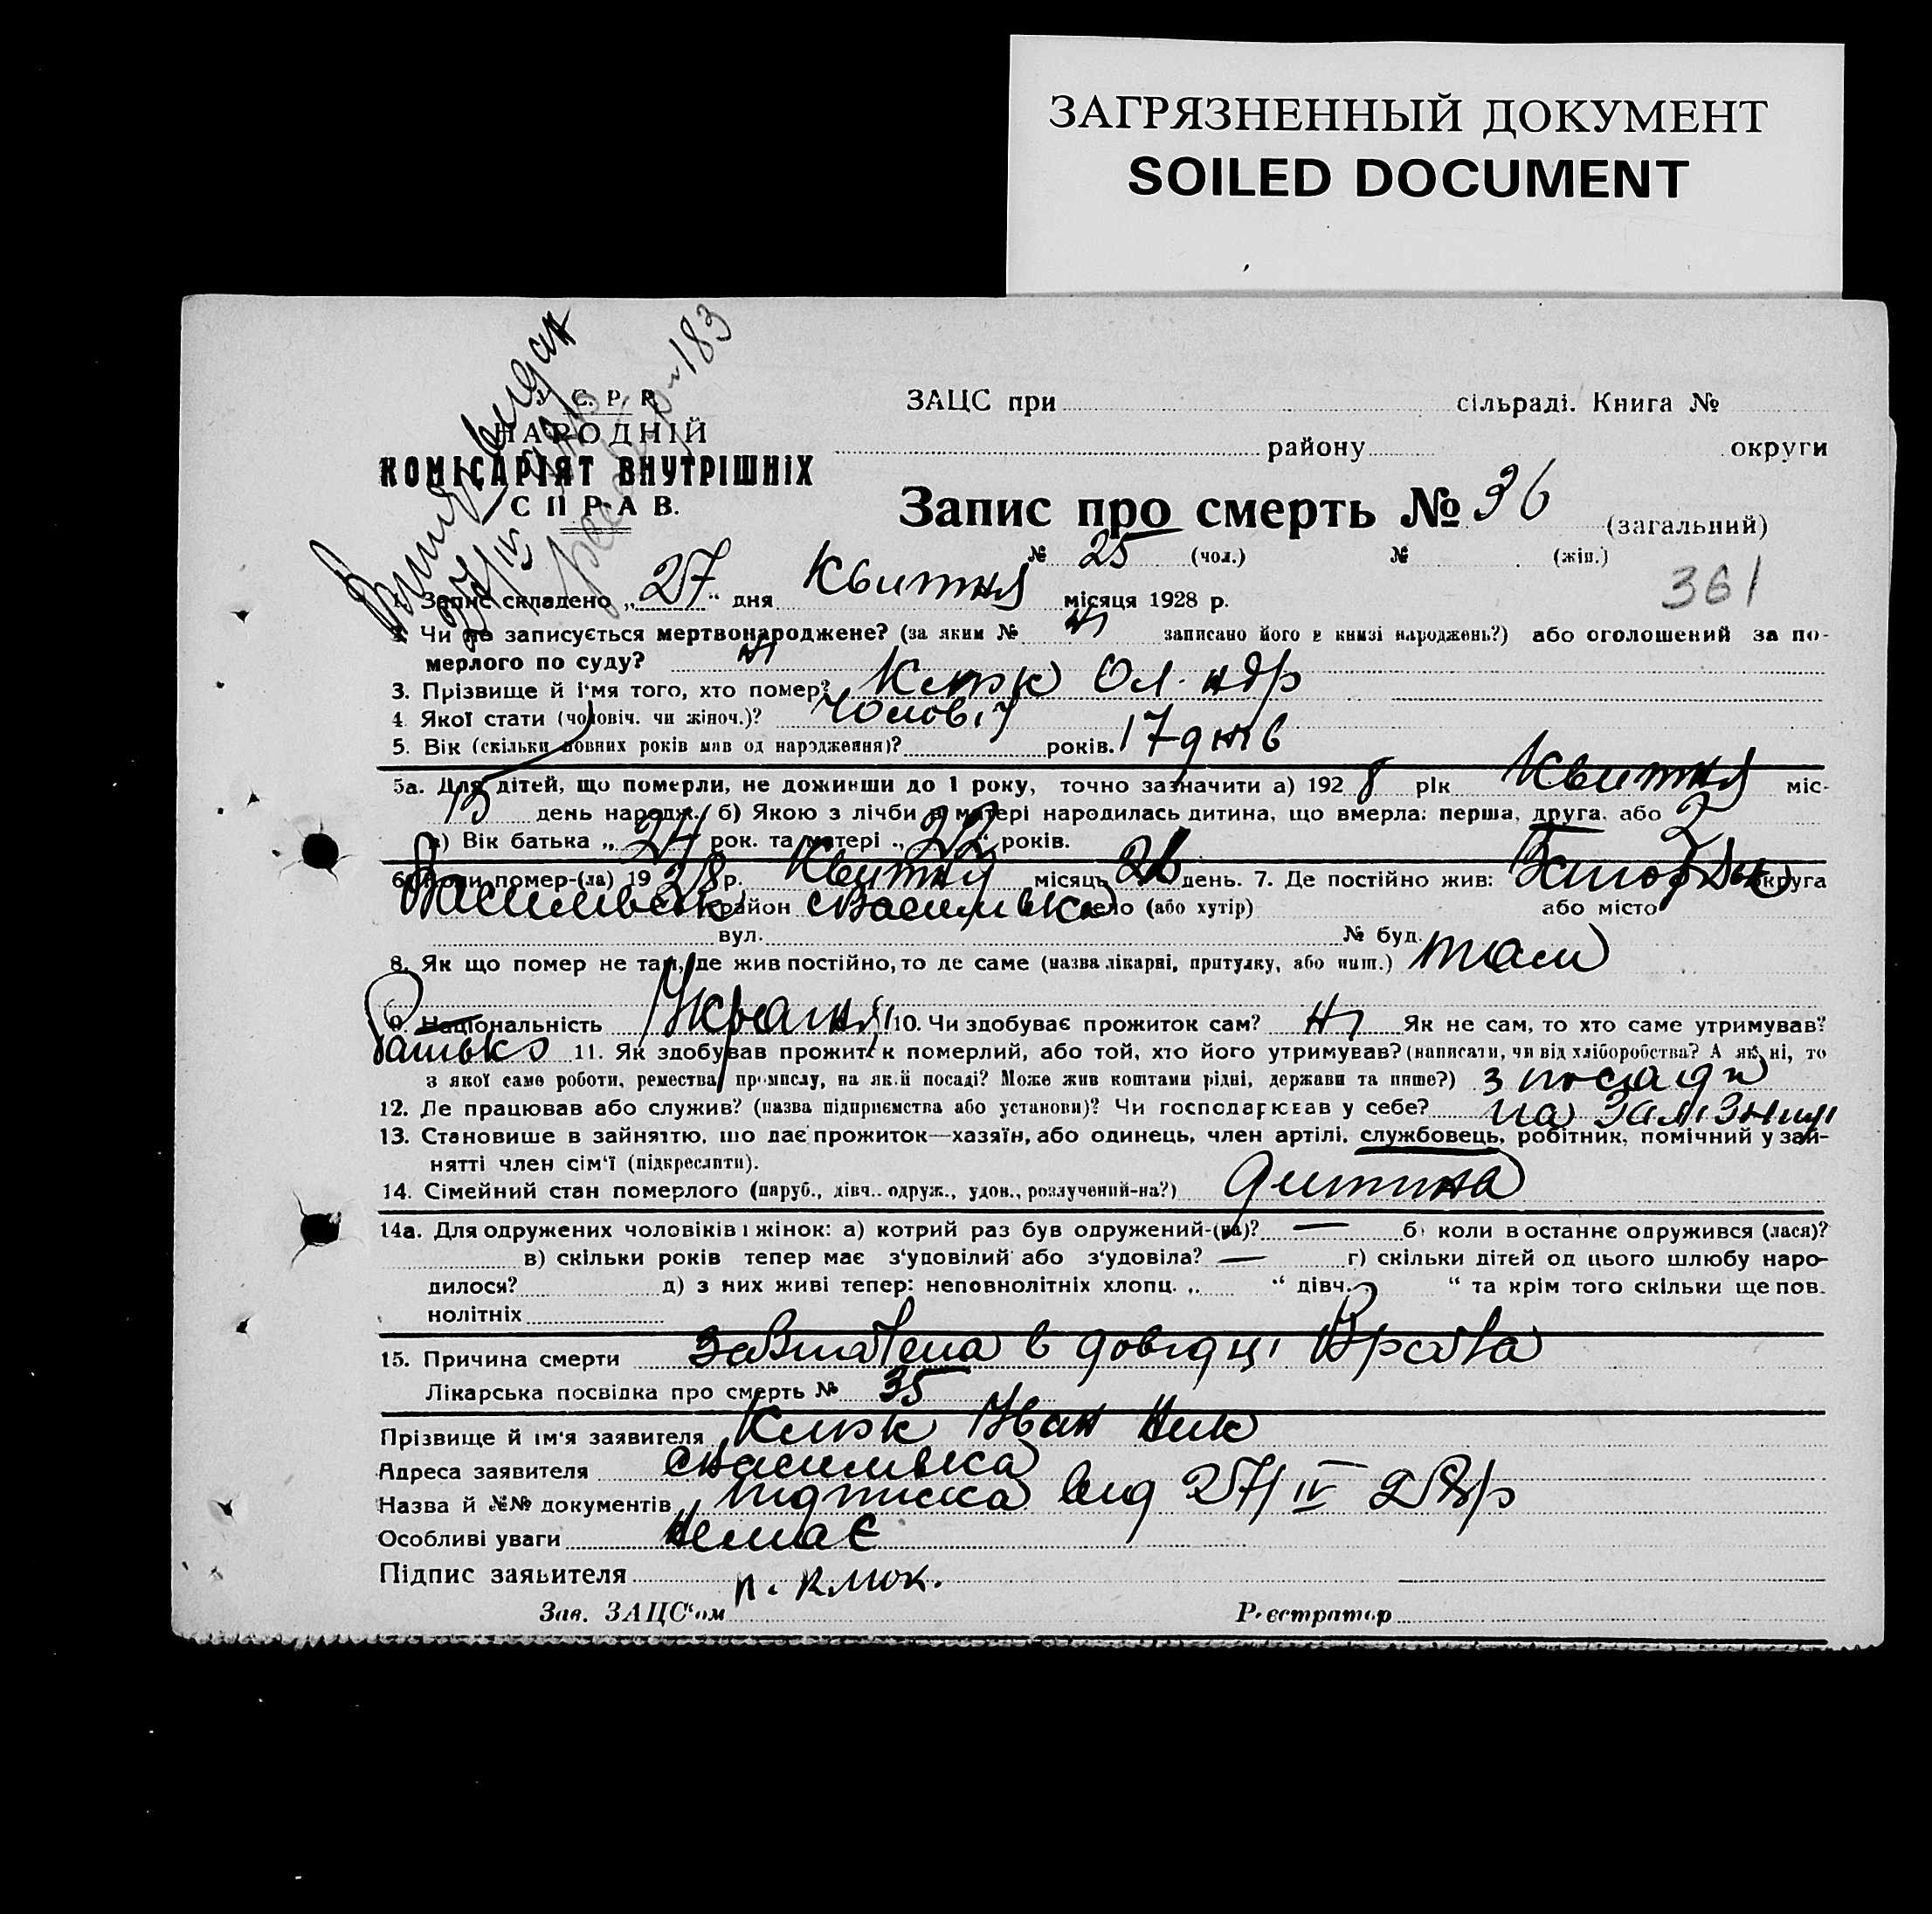 ЗАГРЯЗНЕННЫЙ ДОКУМЕНТ
SOILED DOCUMENT
У. С. Р. Р.
НАРОДНІЙ
КОМІСАРІЯТ ВНУТРІШНІХ
СПРАВ.
183
ЗАЦС при сільраді. Книга №
району округи
Запис про смерть № 36 (загальний)
№ 25 (чол.) № (жін.)
361
1. Запис складено „27“ дня Квитня місяця 1928 р.
2. Чи не записується мертвонароджене? (за яким № ні записано його в книзі народжень?) або оголошений за по-
мерлого по суду? ні
3. Прізвище й ім'я того, хто помер? Клюк Ол-ндр
4. Якої стати (чоловіч. чи жіноч.)? Чоловіч
5. Вік (скільки повних років мав од народження)? років. 17 днів
5а. Для дітей, що померли, не доживши до 1 року, точно зазначити а) 1928 рік Квитня міс-
день народж. б) Якою з лічби в матері народилась дитина, що вмерла: перша, друга, або 2
в) Вік батька „24 рок. та матері „22“ років.
6. Коли помер-(ла) 1928 р. Квитня місяць 26 день. 7. Де постійно жив: округа
Василівськ район с Василівка село (або хутір) або місто
вул. № буд.
8. Як що помер не там, де жив постійно, то де саме (назва лікарні, притулку, або инш.) там
9. Національність 10. Чи здобуває прожиток сам? ні Як не сам, то хто саме утримував?
батько 11. Як здобував прожиток померлий, або той, хто його утримував? (написати, чи від хліборобства? А як ні, то
з якої саме роботи, ремества, промислу, на якій посаді? Може жив коштами рідні, держави та инше?) з посади
12. Де працював або служив? (назва підприємства або установи)? Чи господарював у себе? на залізниці
13. Становище в зайняттю, що дає прожиток—хазяїн, або одинець, член артілі, службовець, робітник, помічний у зай-
нятті член сім'ї (підкреслити).
14. Сімейний стан померлого (паруб., дівч.. одруж., удов., розлучений-на?) дитина
14а. Для одружених чоловіків і жінок: а) котрий раз був одружений-(на)? — б) коли востаннє одружився (лася)?
в) скільки років тепер має з'удовілий або з'удовіла? — г) скільки дітей од цього шлюбу наро-
дилося? д) з них живі тепер: неповнолітніх хлопц. „ “ дівч. “ та крім того скільки ще пов-
нолітніх
15. Причина смерти в довідці Врача
Лікарська посвідка про смерть № 35
Прізвище й ім'я заявителя Клюк Іван Ник
Адреса заявителя с Василівка
Назва й №№ документів підписка від 27/IV 28р
Особливі уваги Немає
Підпис заявителя п. Клюк.
Зав. ЗАЦС'ом Реєстратор